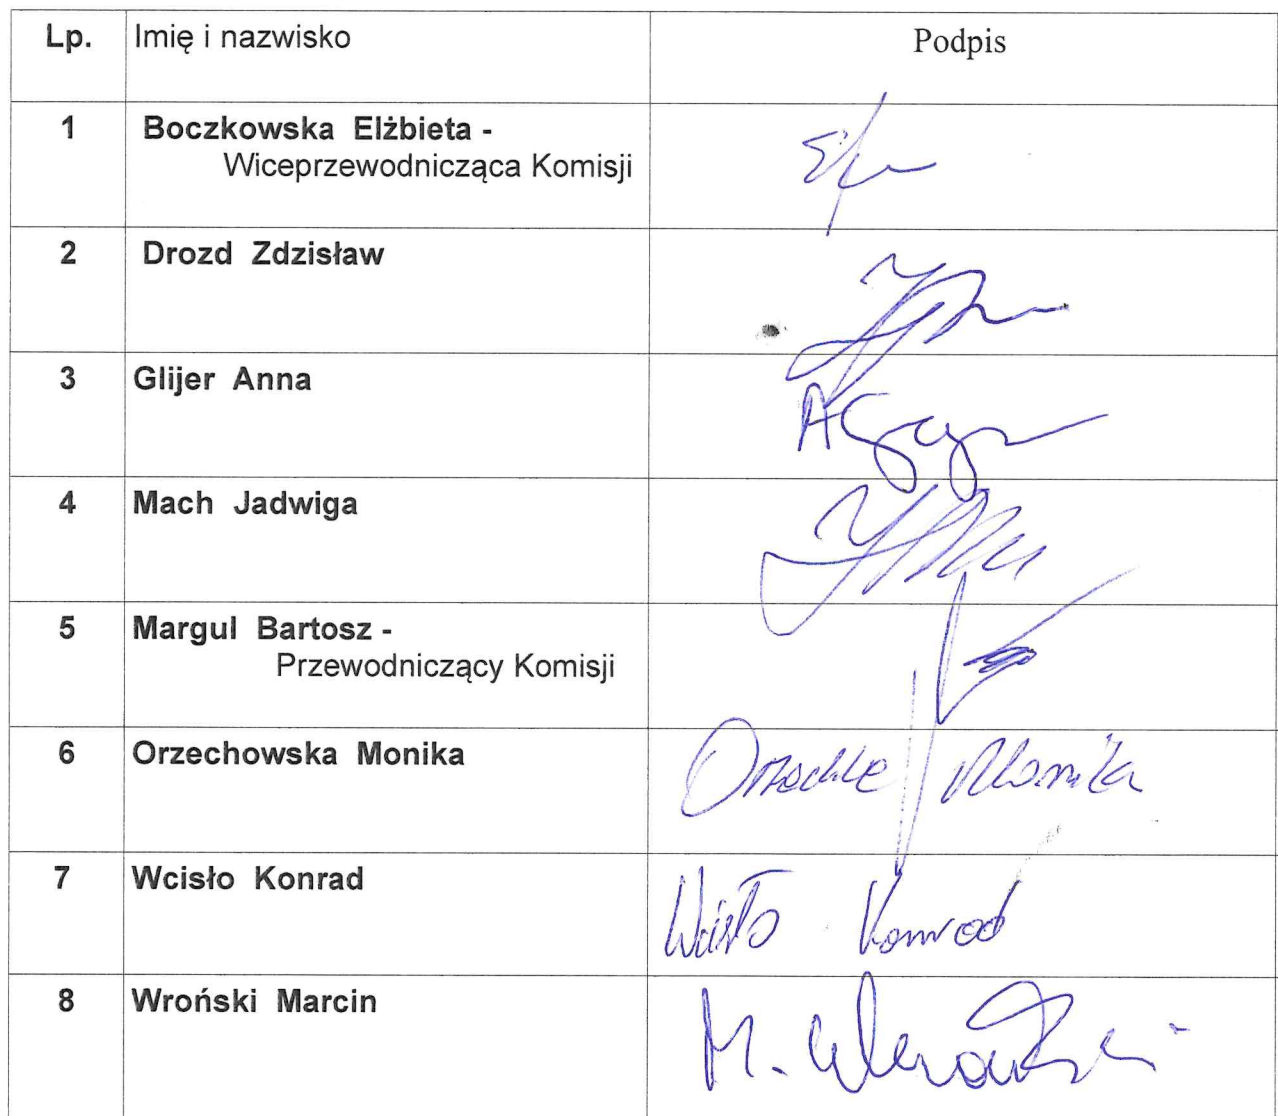 Lp. Imię i nazwisko Podpis
1 Boczkowska Elżbieta -
Wiceprzewodnicząca Komisji
2 Drozd Zdzisław
3 Glijer Anna
4 Mach Jadwiga
5 Margul Bartosz -
Przewodniczący Komisji
6 Orzechowska Monika Monika
7 Wcisło Konrad Wcisło Konrad
8 Wroński Marcin M. Wroński